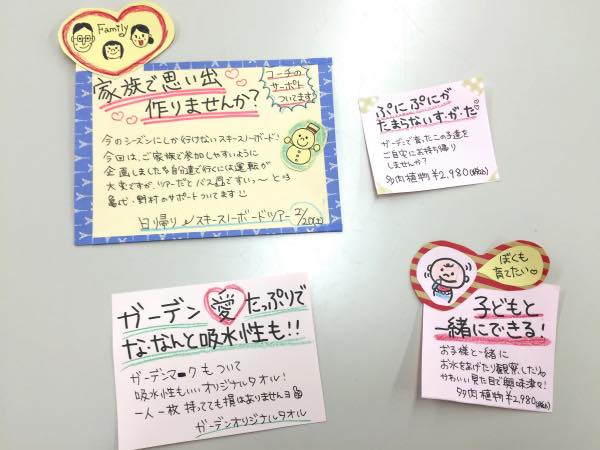 Family
家族で思い出
作りませんか?
コーチの
サーポート
ついてます!
今のシーズンにしか行けないスキースノーボード!
今回は、ご家族で参加しやすいように
企画しました!自分達で行くには運転が
大変ですが、ツアーだとバス
亀代・野村のサポートついてます!!
日帰り スキースノーボードツアー 2/20(土)
ぷにぷにが
たまらないす・が・た
ガーデンで育ったこの子達を
ご自宅にお持ち帰り
しませんか?
多肉植物¥2,980(税込)
ガーデン愛たっぷりで
な・なんと吸水性も!!
ガーデンマークもついて
吸水性もいいオリジナルタオル!
一人一枚持ってても損はありませんヨ
ガーデンオリジナルタオル
ぼくも
育てたい
子どもと
一緒にできる!
お子様と一緒に
お水をあげたり観察したり。
かわいい見た目で興味津々!
多肉植物¥2,980(税込)